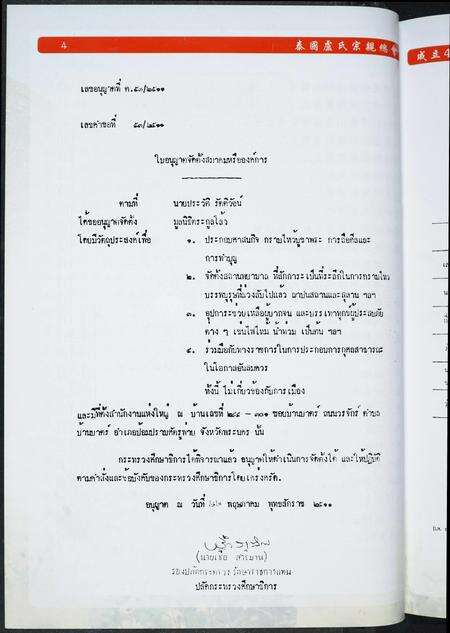 4
泰國盧氏宗親總會
成立4
เลขอนุญาตที่ ต.๕๐/๒๕๑๑
เลขคำขอที่ ๕๓/๒๕๑๑
ใบอนุญาตจัดตั้งสมาคมหรือองค์การ
ตามที่ นายประวัติ รัตติวัธน์
ได้ขออนุญาตจัดตั้ง มูลนิธิตระกูลโล้ว
โดยมีวัตถุประสงค์เพื่อ ๑. ประกอบศาสนกิจ กราบไหว้บูชาพระ การถือศีลและ
การทำบุญ
๒. จัดตั้งสถานพยาบาล ที่สักการะ เป็นที่ระลึกในการกราบไหว้
บรรพบุรุษที่ล่วงลับไปแล้ว ฌาปนสถานและสุสาน ฯลฯ
๓. อุปการะช่วยเหลือผู้ยากจน และบรรเทาทุกข์ผู้ประสบภัย
ต่าง ๆ เช่นไฟไหม้ น้ำท่วม เป็นต้น ฯลฯ
๔. ร่วมมือกับทางราชการในการประกอบการกุศลสาธารณะ
ในโอกาสอันสมควร
ทั้งนี้ ไม่เกี่ยวข้องกับการเมือง
และมีที่ตั้งสำนักงานแห่งใหญ่ ณ บ้านเลขที่ ๒๙๙ - ๓๐๑ ซอยบ้านบาตร์ ถนนวรจักร์ ตำบล
บ้านบาตร์ อำเภอป้อมปราบศัตรูพ่าย จังหวัดพระนคร นั้น
กระทรวงศึกษาธิการได้พิจารณาแล้ว อนุญาตให้ดำเนินการจัดตั้งได้ และให้ปฏิบัติ
ตามคำสั่งและข้อบังคับของกระทรวงศึกษาธิการโดยเคร่งครัด.
อนุญาต ณ วันที่ พฤษภาคม พุทธศักราช ๒๕๑๑
(นายเชื้อ สาริมาน)
รองปลัดกระทรวง รักษาราชการแทน
ปลัดกระทรวงศึกษาธิการ